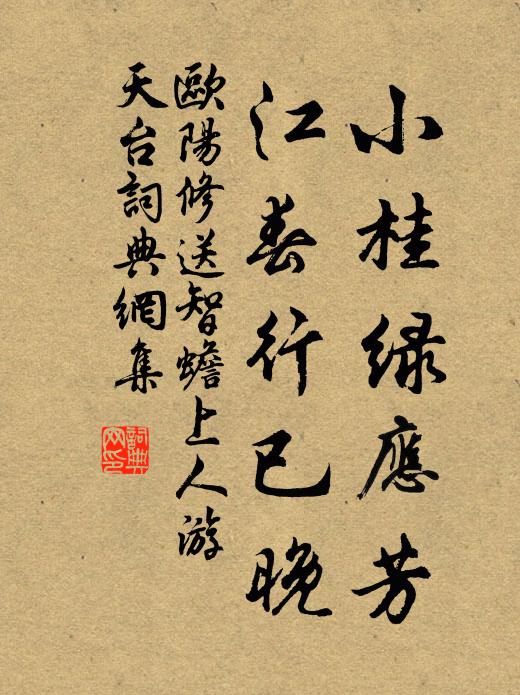 小桂绿應芳
江春行已晚
歐陽修送智蟾上人游
天台詞典網集
詞典
网印